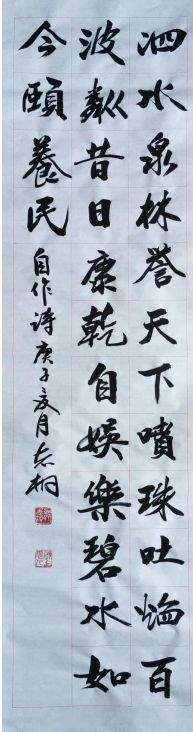 泗水泉林誉天下噴珠吐焰百
波粼昔日康乾自娱樂碧水如
今頤養民自作诗庚子夏月志桐